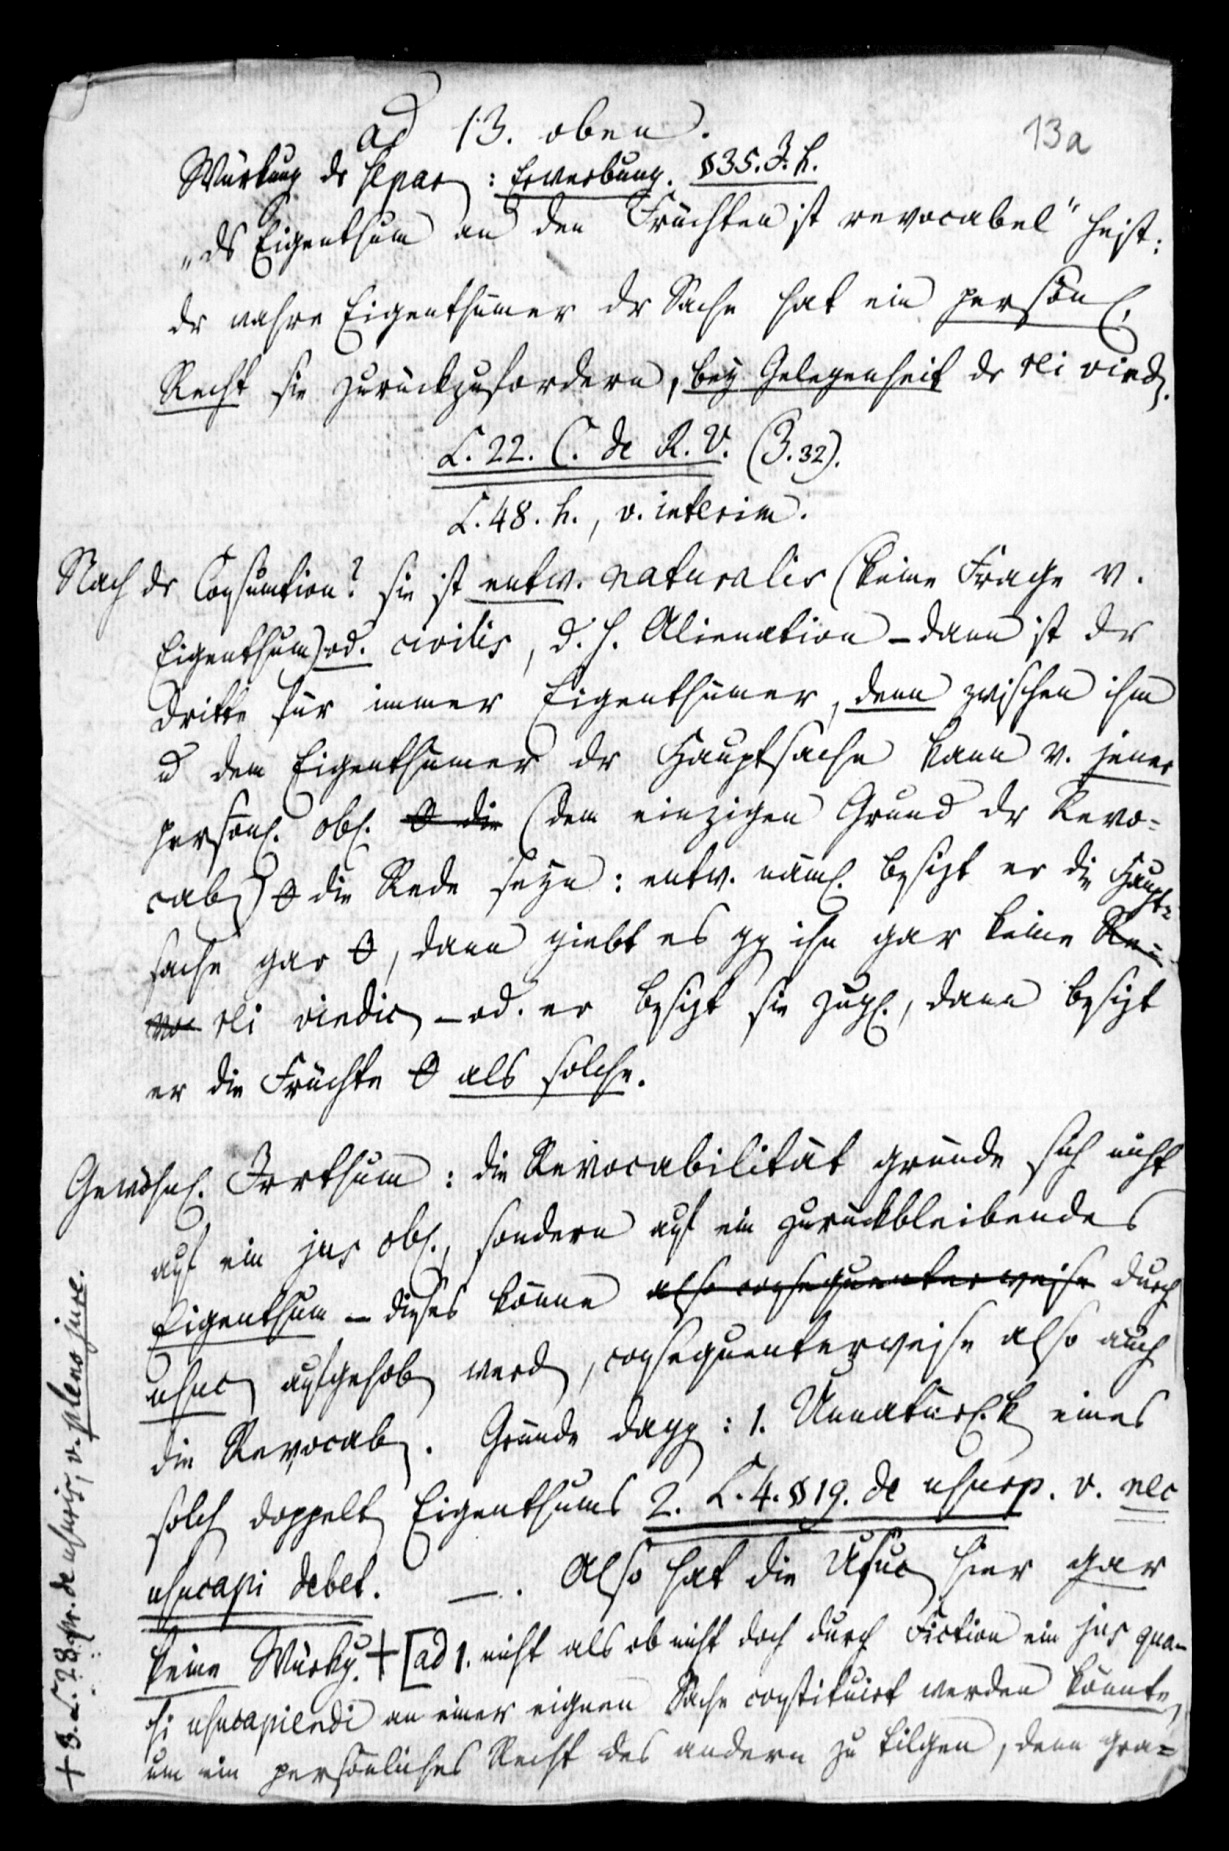 ad 13. oben.
13a
Würkung dr separ: Erwerbung. §35. J. h.
„ds Eigenthum an den Früchten ist revocabel“ heist:
dr wahre Eigenthümer dr Sache hat ein persönl.
Recht sie zurückzufordern, bey Gelegenheit dr rei vind.
L. 22. C. de R. V. (3.32).
L. 48. h., v. interim.
Nach dr Consumtion? sie ist entw. naturalis (keine Frage v.
Eigenthum) od. civilis, d. h. Alienation – dann ist dr
Dritte für immer Eigenthümer, denn zwischen ihm
u dem Eigenthümer dr Hauptsache kann v. jener
persönl. obl. 0 die (dem einzigen Grund dr Revo=
cab) 0 die Rede seyn: entw. nämlich besizt er die Haupt=
sache gar 0, dann giebt es gg ihn gar keine Re=
vo rei vindic – od. er besizt sie zugl., dann besizt
er die Früchte 0 als solche.
Gewöhnl. Irrthum: die Revocabilität gründe sich nicht
auf ein jus obl., sondern auf ein zurückbleibendes
Eigenthum – dieses könne also consequenterweise durch
usuc aufgehob werd, consequenterweise also auch
die Revocab. Gründe dagg: 1. Unnatürlk eines
solch doppelt Eigenthums 2. L. 4. §19. de usurp. v. nec
usucapi debet. —. Also hat die Usuc hier gar
keine Würkg. + [ad 1. nicht als ob nicht doch durch Fiction ein jus qua=
si usucapiendi an einer eignen Sache constituirt werden könnte,
um ein persönliches Recht des andern zu tilgen, denn gra=
+ 3. L. 28. pr. de usuris, v. pleno jure.